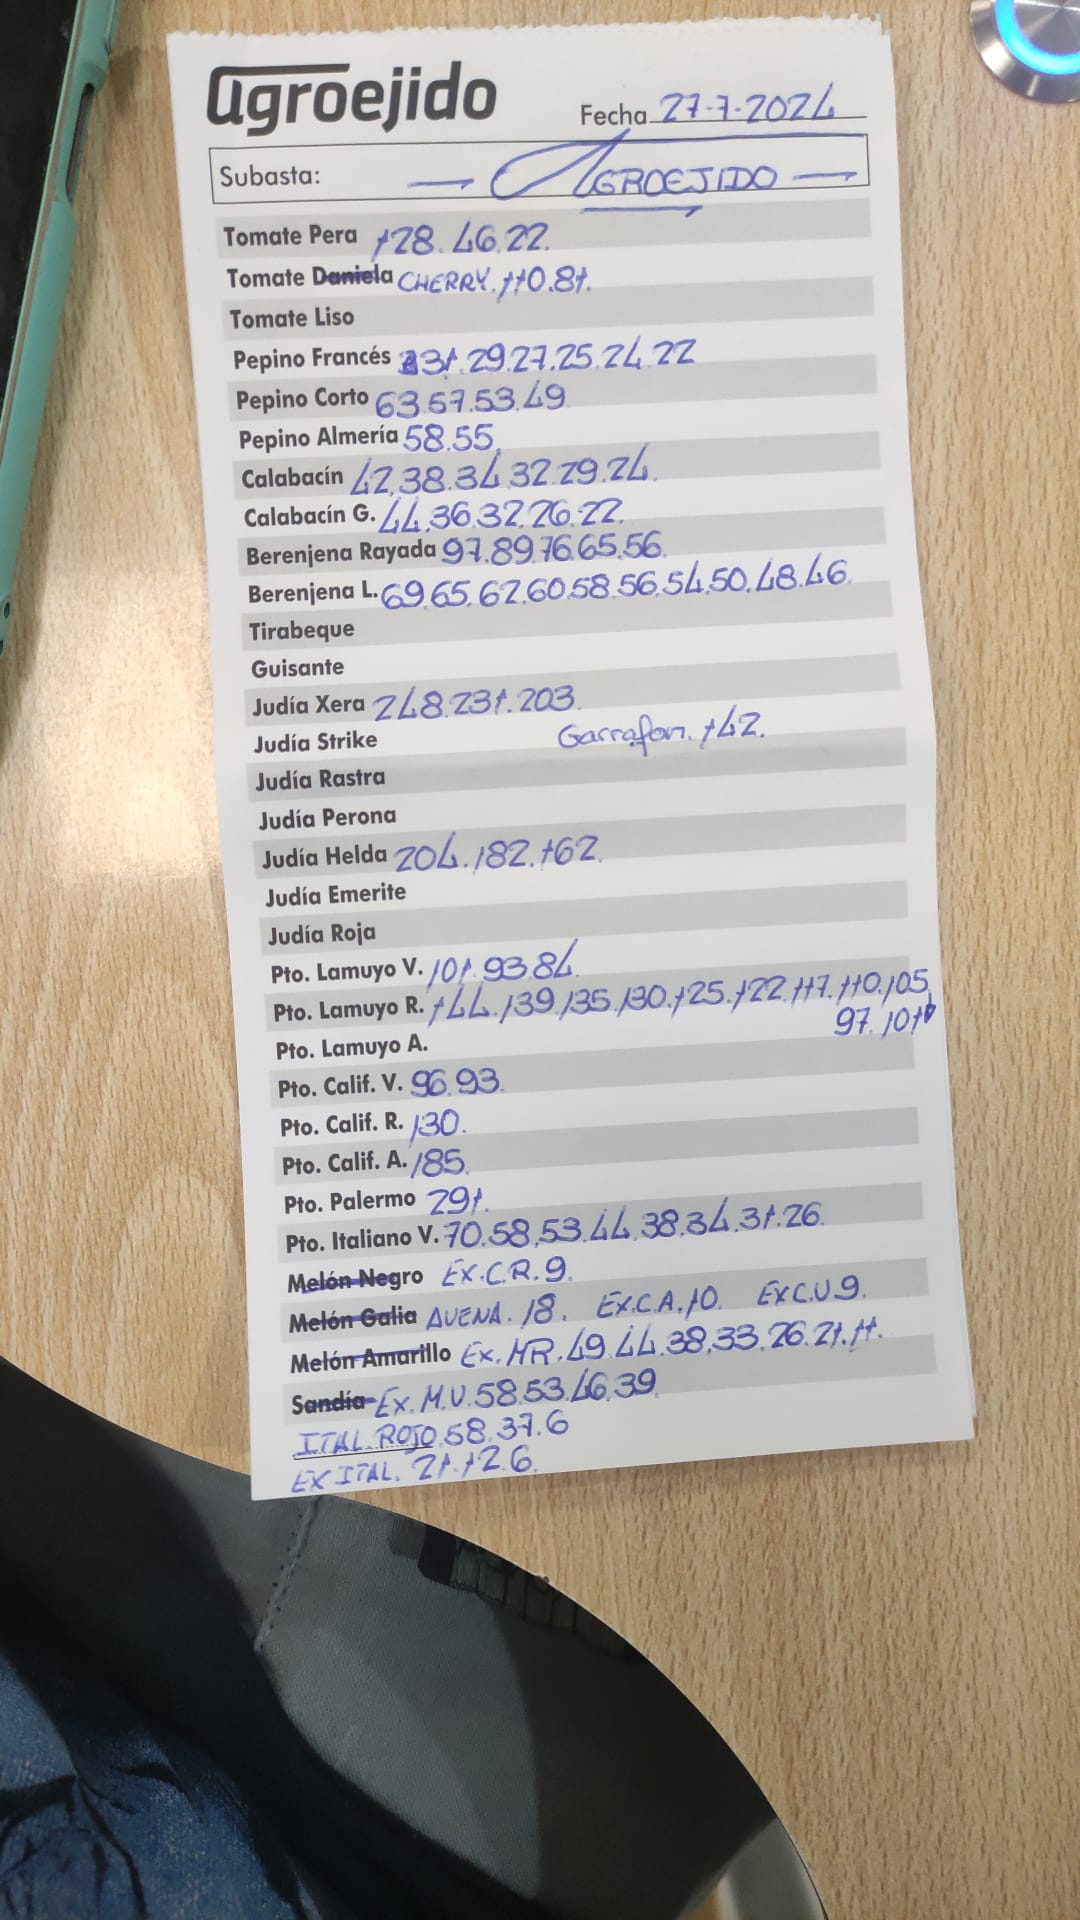 agroejido
Fecha 27-7-2024
Subasta: — AGROEJIDO —
Tomate Pera 128.46.22.
Tomate Daniela CHERRY. 110.81.
Tomate Liso
Pepino Francés 31.29.27.25.24.22
Pepino Corto 63.57.53.49
Pepino Almería 58.55.
Calabacín 42.38.34.32.29.24.
Calabacín G. 44.36.32.26.22.
Berenjena Rayada 97.89.76.65.56.
Berenjena L. 69.65.62.60.58.56.54.50.48.46.
Tirabeque
Guisante
Judía Xera 248.231.203.
Judía Strike Garrafon. 142.
Judía Rastra
Judía Perona
Judía Helda 204.182.162.
Judía Emerite
Judía Roja
Pto. Lamuyo V. 101.93.84.
Pto. Lamuyo R. 144.139.135.130.125.122.117.110.105
97.101
Pto. Lamuyo A.
Pto. Calif. V. 96.93.
Pto. Calif. R. 130.
Pto. Calif. A. 185.
Pto. Palermo 291.
Pto. Italiano V. 70.58.53.44.38.34.31.26.
Melón Negro EX.C.R.9.
Melón Galia AVENA. 18. EX.C.A.10. EXC.V.9.
Melón Amarillo EX.MR.49.44.38.33.26.21.11.
Sandía EX.M.V.58.53.46.39
ITAL. ROJO.58.37.6
EX ITAL. 21.12.6.